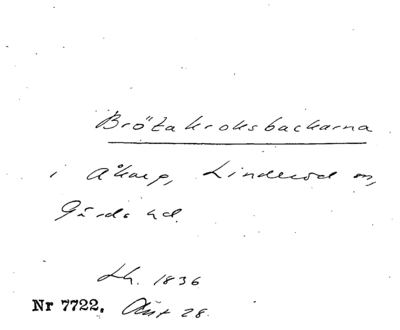 Brötakroksbackarna
i Åkarp, Linderöd sn,
Gärds hd.
Lh. 1836
Nr 7722. Akt 28.